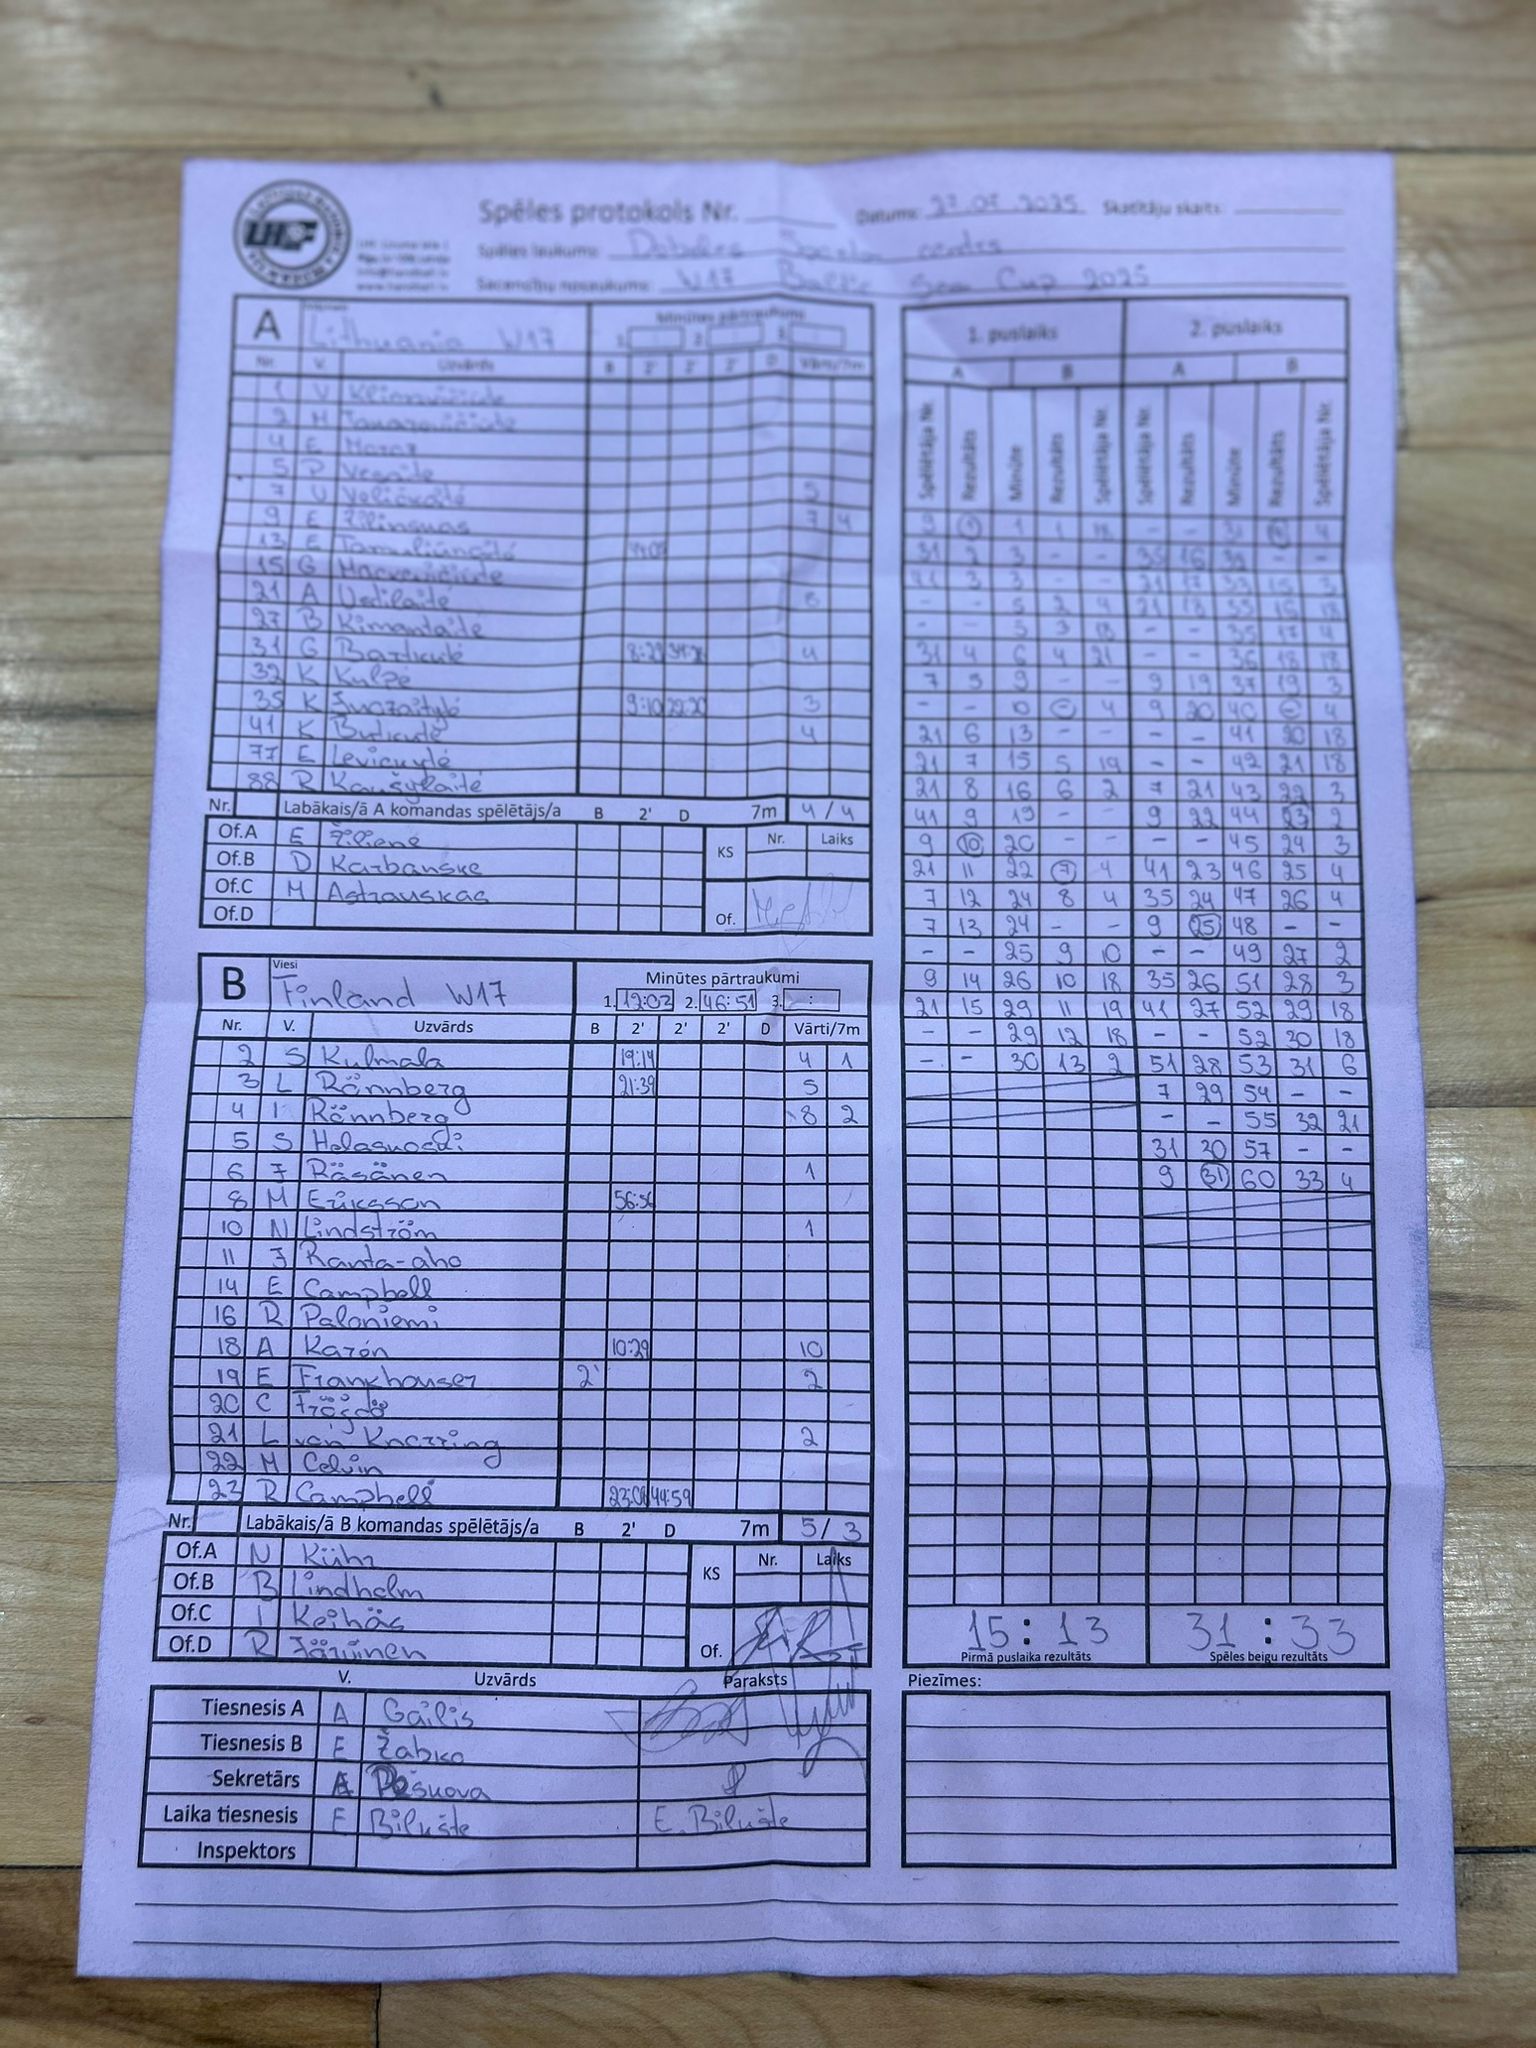 Spēles protokols Nr.
Datums: 27.07.2025 Skatītāju skaits:
Spēles laukums: Dobeles Sporta centrs
Sacensību nosaukums: W17 Baltic Sea Cup 2025
A
Lithuania W17
Minūtes pārtraukumi
1. 2. 3.
Nr. V. Uzvārds B 2' 2' 2' D Vārti/7m
1 V
2 M
4 E
5
7 U 5
9 E Žilinskas 7 4
13 E
15 G
21 A 8
27 B Kimantaitė
31 G 8:29 4
32 K Kulpė
35 K 9:10 22:20 3
41 K Butkutė 4
77 E
88 R
Nr. Labākais/ā A komandas spēlētājs/a B 2' D 7m 4/4
Of.A E Žilienė
Of.B D Karbauskė
Of.C M Astrauskas
Of.D
KS Nr. Laiks
Of.
B
Viesi
Finland W17
Minūtes pārtraukumi
1. 12:02 2. 46:51 3. :
Nr. V. Uzvārds B 2' 2' 2' D Vārti/7m
2 S Kulmala 19:14 4 1
3 L Rönnberg 21:39 5
4 I Rönnberg 8 2
5 S Helasuoski
6 J Räsänen 1
8 M Eriksson 56:56
10 N Lindström 1
11 J Ranta-aho
14 E Campbell
16 R Paloniemi
18 A Karén 10:29 10
19 E Frankhouser 2' 2
20 C
21 L von Knorring 2
22 M Celvin
23 R Campbell 23:06 44:59
Nr. Labākais/ā B komandas spēlētājs/a B 2' D 7m 5/3
Of.A N Kühr
Of.B B Lindholm
Of.C I Keihäs
Of.D R Järvinen
KS Nr. Laiks
Of.
V. Uzvārds Paraksts
Tiesnesis A A Gailis
Tiesnesis B E Žabko
Sekretārs
Laika tiesnesis E Bilušte E. Bilušte
Inspektors
1. puslaiks 2. puslaiks
A B A B
Spēlētāja Nr. Rezultāts Minūte Rezultāts Spēlētāja Nr. Spēlētāja Nr. Rezultāts Minūte Rezultāts Spēlētāja Nr.
9 1 1 1 18 - - 31 14 4
31 2 3 - - 35 16 32 - -
41 3 3 - - 21 17 33 15 3
- - 5 2 4 21 18 35 16 18
- - 5 3 18 - - 35 17 4
31 4 6 4 21 - - 36 18 18
7 5 9 - - 9 19 37 19 3
- - 10 - 4 9 20 40 - 4
21 6 13 - - - - 41 20 18
21 7 15 5 19 - - 42 21 18
21 8 16 6 2 7 21 43 22 3
41 9 19 - - 9 22 44 23 2
9 10 20 - - - - 45 24 3
21 11 22 7 4 41 23 46 25 4
7 12 24 8 4 35 24 47 26 4
7 13 24 - - 9 25 48 - -
- - 25 9 10 - - 49 27 2
9 14 26 10 18 35 26 51 28 3
21 15 29 11 19 41 27 52 29 18
- - 29 12 18 - - 52 30 18
- - 30 13 2 51 28 53 31 6
7 29 54 - -
- - 55 32 21
31 30 57 - -
9 31 60 33 4
15 : 13 31 : 33
Pirmā puslaika rezultāts Spēles beigu rezultāts
Piezīmes: